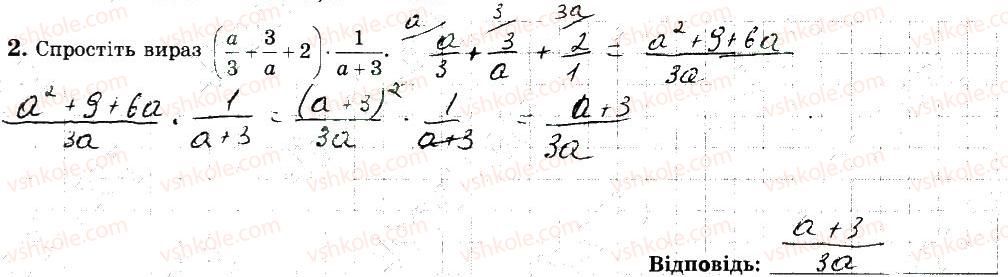 2. Спростіть вираз (a/3 + 3/a + 2) · 1/(a+3). a/3 + 3/a + 2/1 = (a² + 9 + 6a)/3a
(a² + 9 + 6a)/3a · 1/(a+3) = (a+3)²/3a · 1/(a+3) = (a+3)/3a
Відповідь: (a+3)/3a